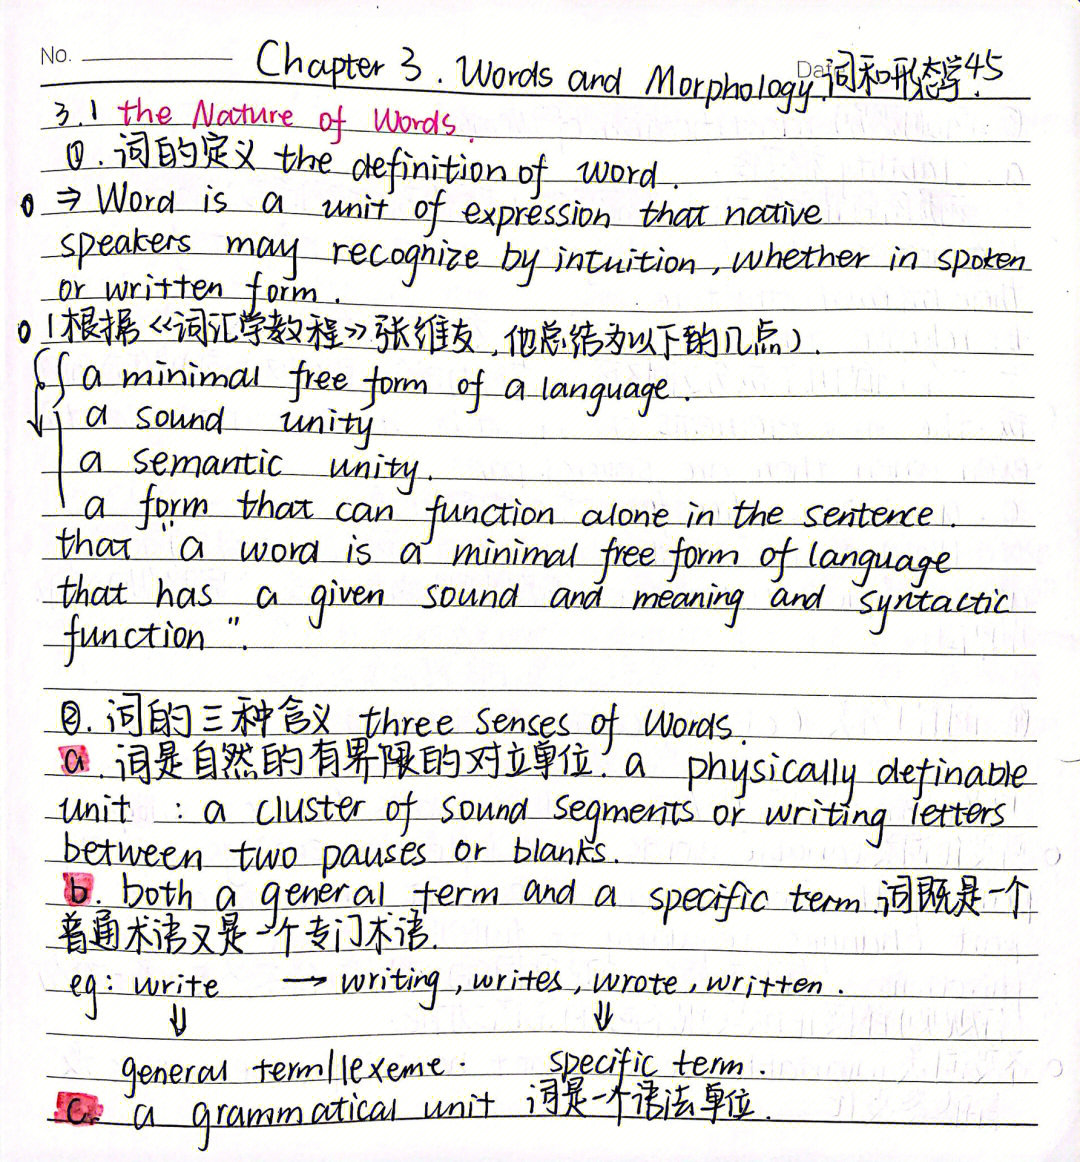 No. Chapter 3. Words and Morphology.词和形态学.45
3.1 the Nature of Words.
①.词的定义 the definition of word.
⇒ Word is a unit of expression that native
speakers may recognize by intuition, whether in spoken
or written form.
(根据《词汇学教程》张维友,他总结为以下的几点).
a minimal free form of a language.
a sound unity
a semantic unity.
a form that can function alone in the sentence.
that "a word is a minimal free form of language
that has a given sound and meaning and syntactic
function".
②.词的三种含义 three senses of Words.
a.词是自然的有界限的对立单位. a physically definable
unit : a cluster of sound segments or writing letters
between two pauses or blanks.
b. both a general term and a specific term.词既是一个
普通术语又是一个专门术语.
eg: write → writing, writes, wrote, written.
⇓ ⇓
general term/lexeme. specific term.
c. a grammatical unit 词是一个语法单位.